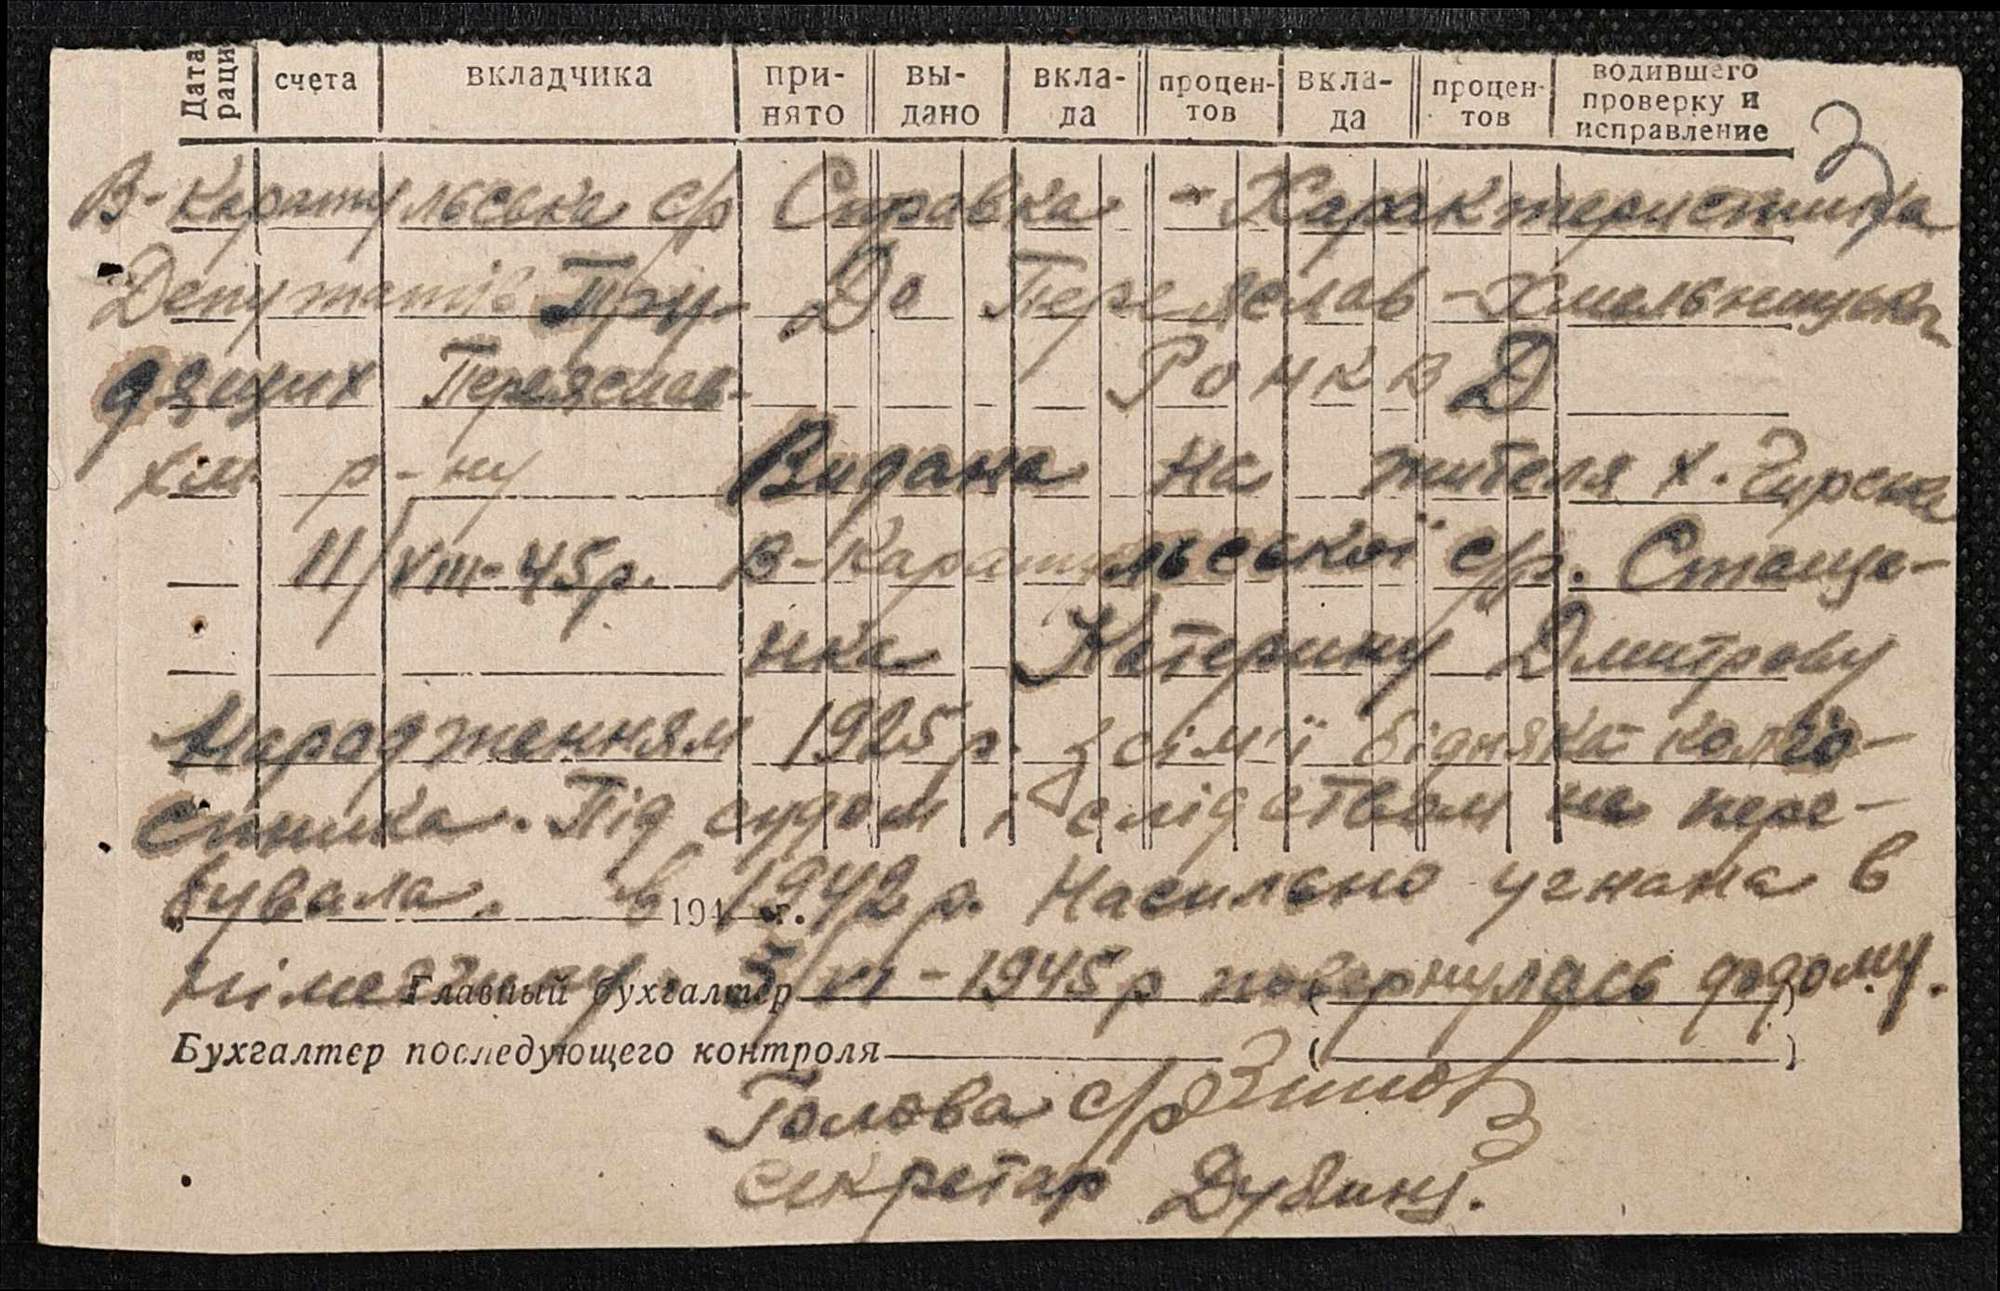 Дата раци счета вкладчика при- нято вы- дано вкла- да процен- тов вкла- да процен- тов водившего проверку и исправление
2
В-Каратульська с/р Справка - Характеристика
Депутатів Тру- До Переяслав-Хмельницьк
дящих Переяслав- РОНКВД
Хм. р-ну Видана на жителя х.
11/VIII-45р. В-Каратульської с/р. Стаще-
нка Катерину Дмитрову
Народженням 1925р. з сім'ї бідняка колго-
спника. Під судом і слідством не пере-
бувала. в 1942 р. Насильно угнана в
194 г.
німеччину 5/VI-1945р повернулась додому.
Главный бухгалтер ( )
Бухгалтер последующего контроля ( )
Голова с/р
секретар